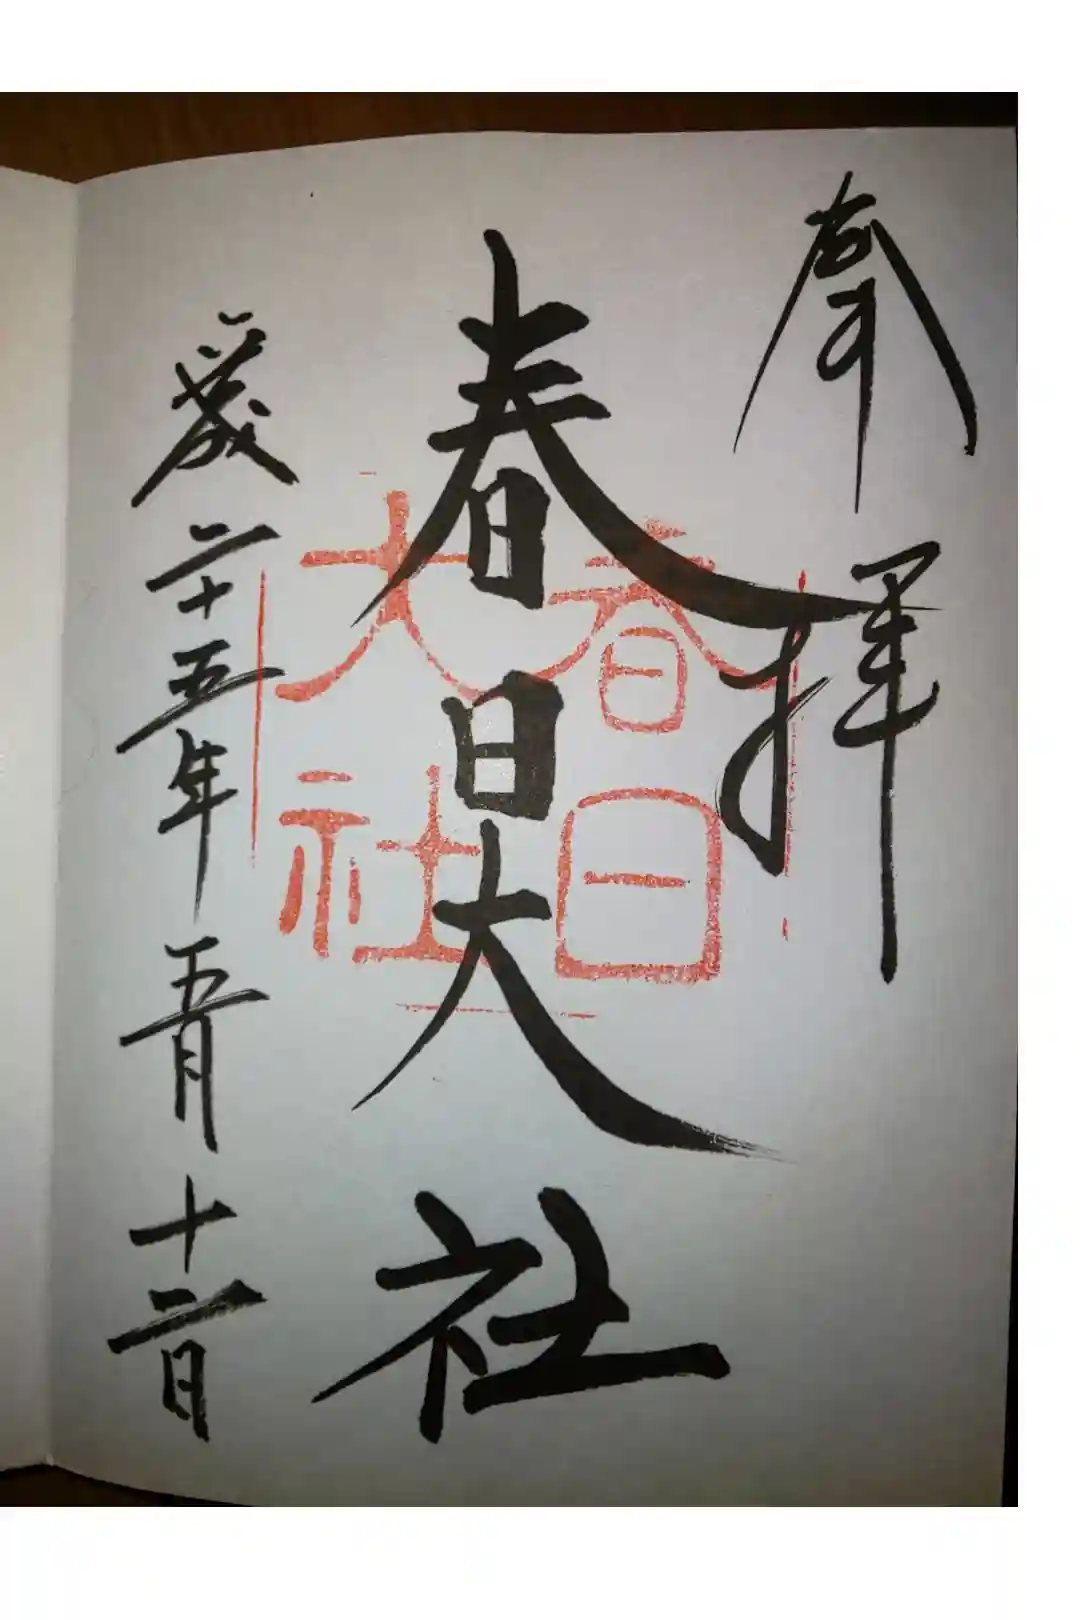 奉拝
春日大社
春日
大社
平成二十五年五月十二日